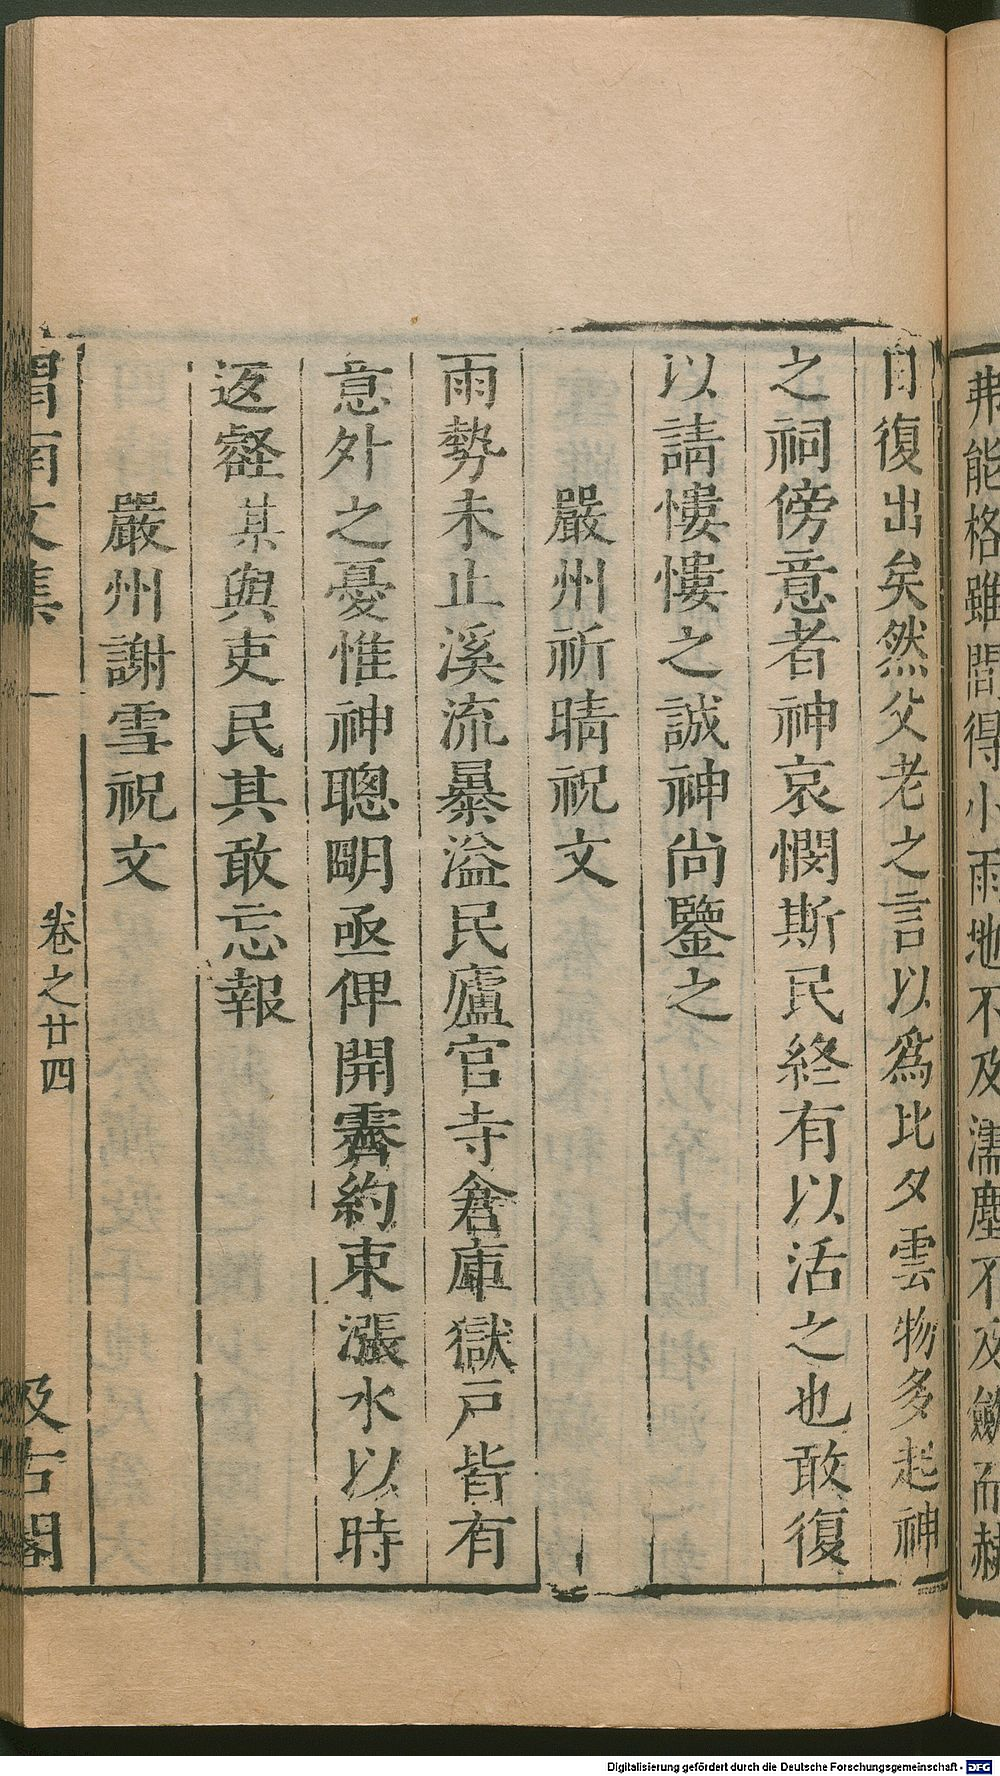 弗能格雖間得小雨地不及濡塵不及斂而赫
日復出矣然父老之言以爲比夕雲物多起神
之祠傍意者神哀憫斯民終有以活之也敢復
以請慺慺之誠神尚鑒之
嚴州祈晴祝文
雨勢未止溪流暴溢民廬官寺倉庫獄戸皆有
意外之憂惟神聰明亟俾開霽約束漲水以時
返壑某與吏民其敢忘報
嚴州謝雪祝文
渭南文集 卷之廿四 汲古閣
Digitalisierung gefördert durch die Deutsche Forschungsgemeinschaft - DFG